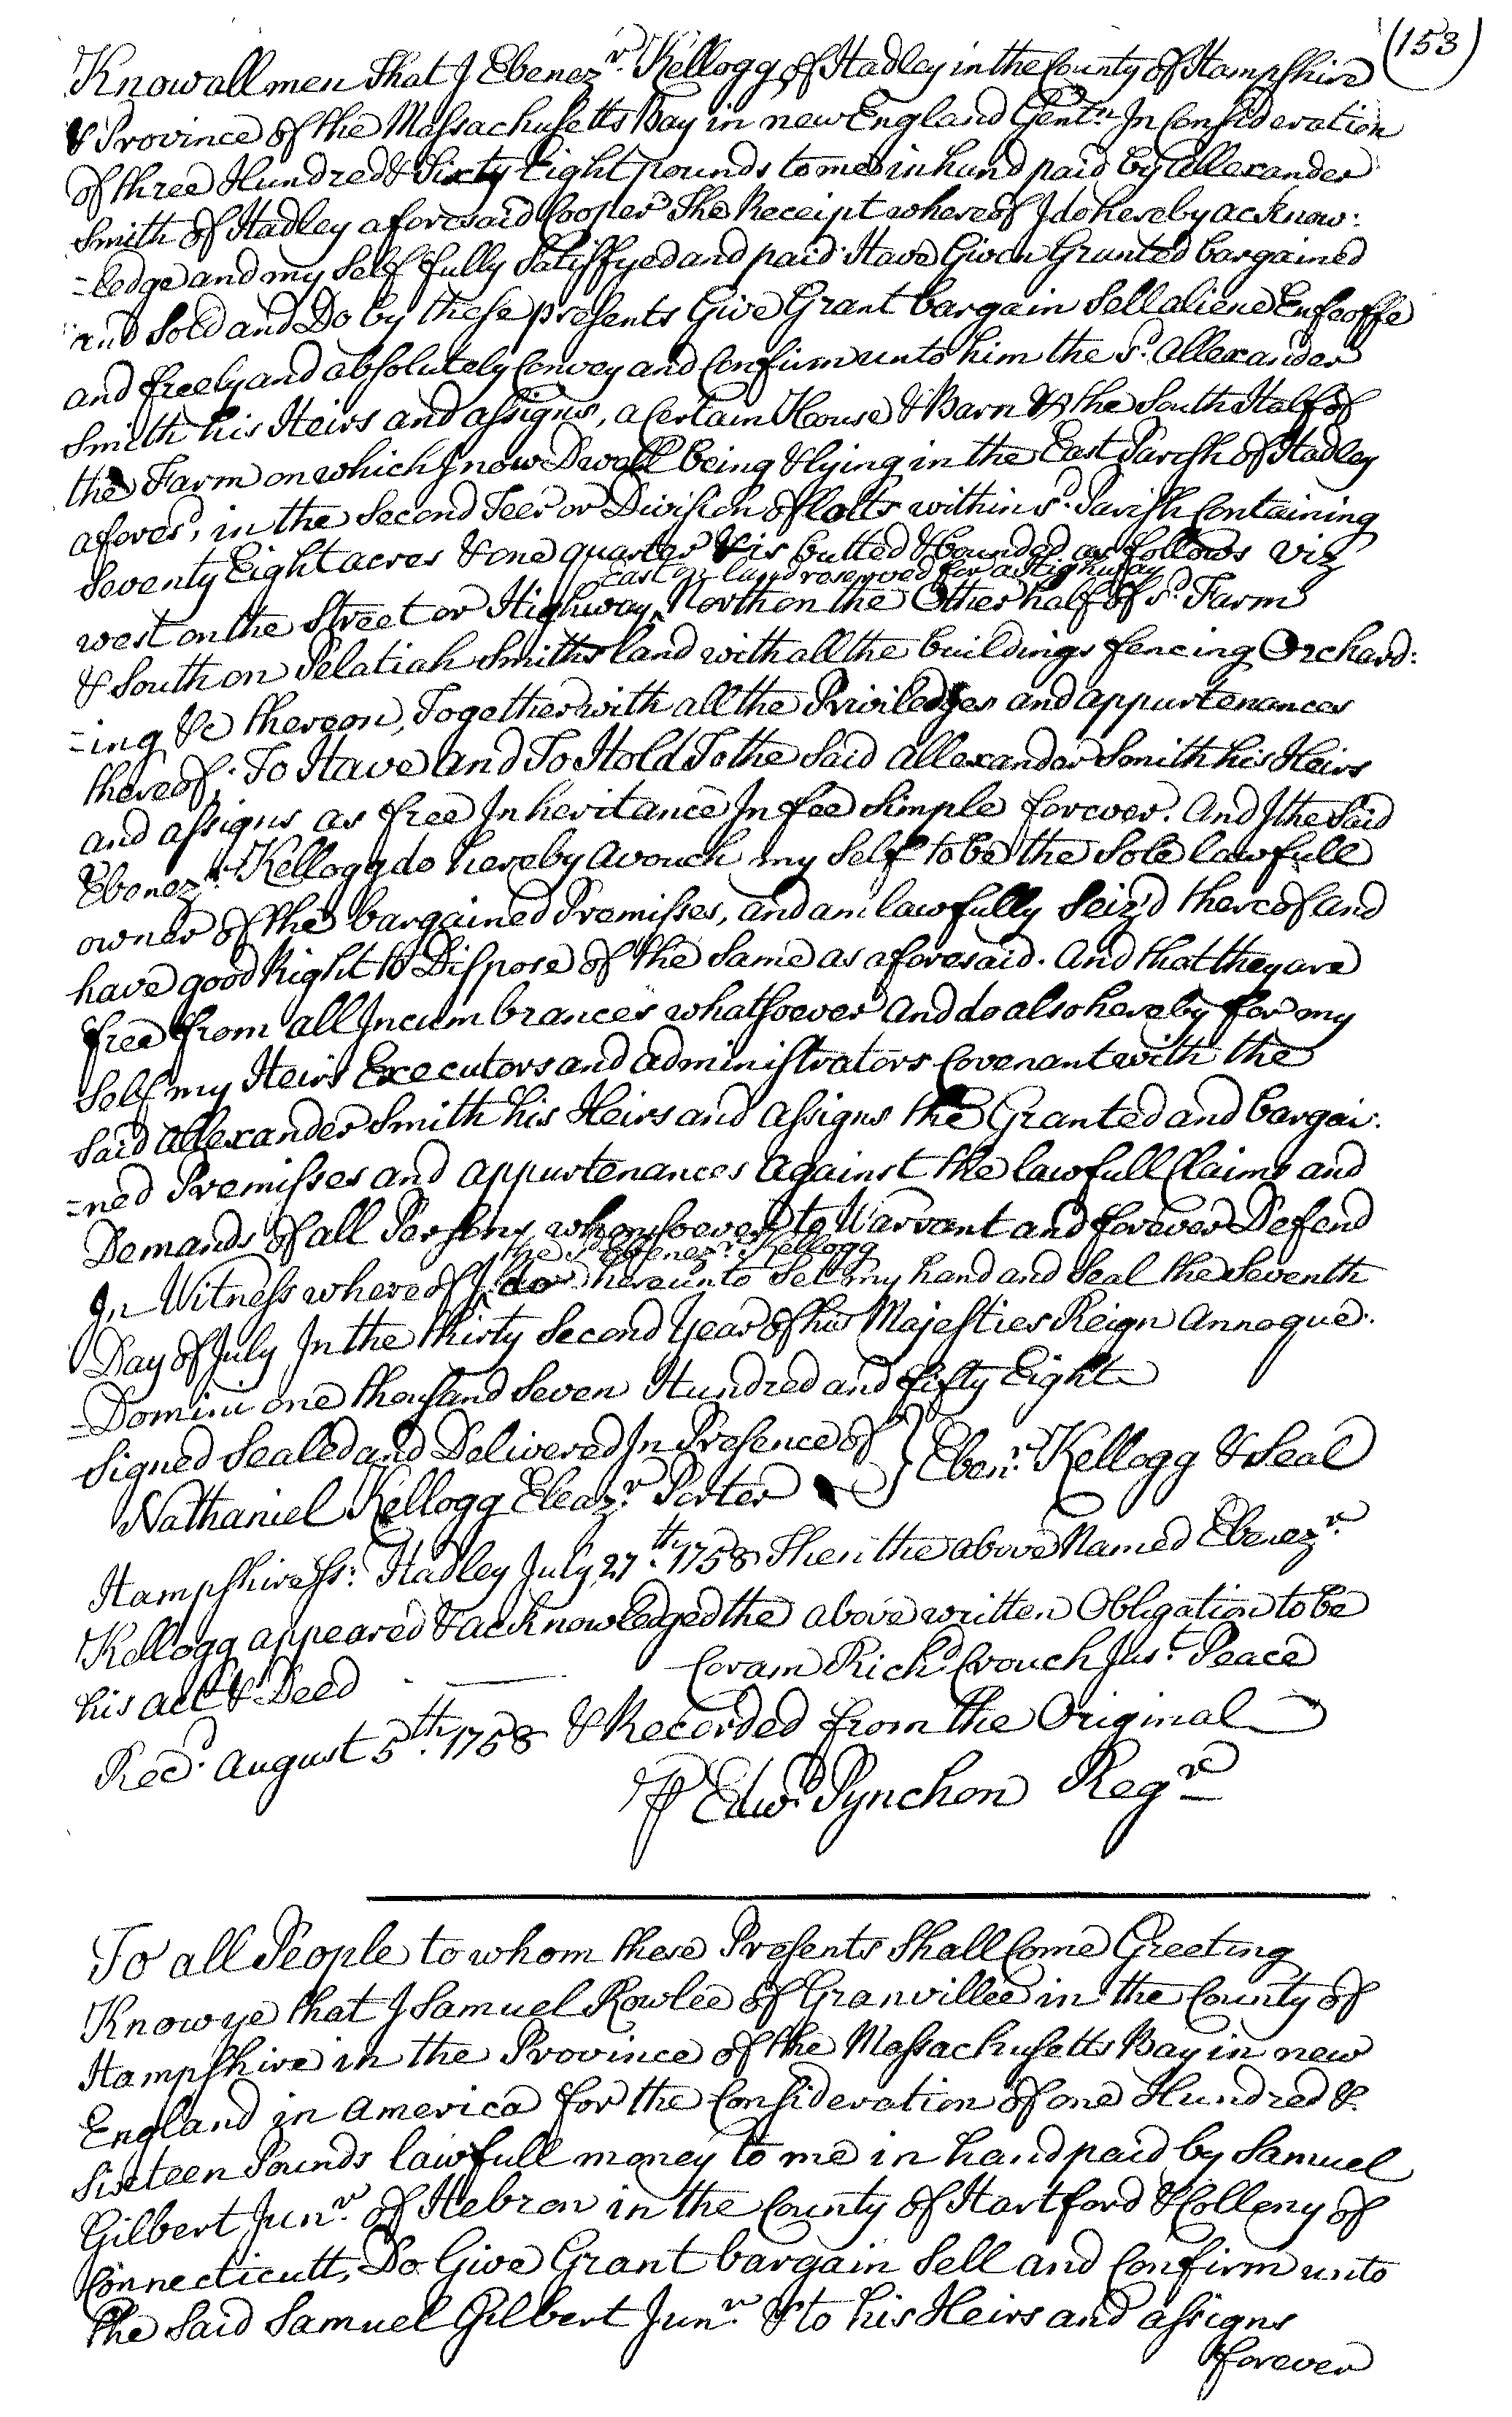 (153)
Know all men That I Ebenezr. Kellogg of Hadley in the County of Hampshire
& Province of the Massachusetts Bay in new England Gentn. In Consideration
of three Hundred & Sixty Eight pounds to me in hand paid by Allexander
Smith of Hadley aforesaid Cooper The Receipt whereof I do hereby acknow:
=ledge and my Self fully Satisfyed and paid Have Given Granted bargained
and Sold and Do by these presents Give Grant bargain Sell aliene Enfeoffe
and freely and absolutely Convey and Confirm unto him the sd. Allexander
Smith his Heirs and assigns, a Certain House & Barn & the South Half of
the Farm on which I now Dwell being & lying in the East Parish of Hadley
aforesd, in the Second Teer or Division of lotts within sd. Parish Containing
Seventy Eight acres & one quarter & is butted & bounded as follows viz
east on land reserved for a Highway
west on the Street or Highway, North on the Other half of sd. Farm
& South on Pelatiah Smiths land with all the buildings fencing Orchard:
=ing &c thereon, Together with all the Priviledges and appurtenances
thereof; To Have and To Hold To the Said Allexander Smith his Heirs
and assigns as free Inheritance In fee Simple forever. And I the Said
Ebenezr. Kellogg do hereby avouch my Self to be the Sole lawfull
owner of the bargained Premisses, and am lawfully Seiz'd thereof and
have good Right to Dispose of the Same as aforesaid. And that they are
free from all Incumbrances whatsoever and do also hereby for my
Self my Heirs Executors and administrators Covenant with the
Said Allexander Smith his Heirs and assigns the Granted and bargai:
=ned Premisses and appurtenances against the lawfull Claims and
Demands of all Persons whomsoever to Warrant and forever Defend
the sd. Ebenezr. Kellogg
In Witness whereof I do hereunto Set my hand and Seal the Seventh
Day of July In the thirty Second Year of his Majesties Reign Annoque:
=Domini one thousand Seven Hundred and fifty Eight
Signed Sealed and Delivered In Presence of } Ebenr. Kellogg & Seal
Nathaniel Kellogg Eleazr. Porter
Hampshire ss: Hadley July 27th. 1758 Then the above Named Ebenezr.
Kellogg appeared & acknowledged the above written Obligation to be
his act & Deed Coram Richd Crouch Just. Peace
Recd. August 5th. 1758 & Recorded from the Original
P Edwd. Pynchon Regr
To all People to whom these Presents Shall Come Greeting
Know ye that I Samuel Rowlee of Granvillee in the County of
Hampshire in the Province of the Massachusetts Bay in new
England in America for the Consideration of one Hundred &
Sixteen Pounds lawfull money to me in hand paid by Samuel
Gilbert Junr. of Hebron in the County of Hartford & Colleny of
Connecticutt, Do Give Grant bargain Sell and Confirm unto
the Said Samuel Gilbert Junr. & to his Heirs and assigns
forever